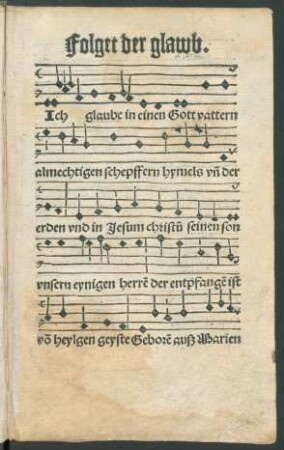 Folget der glawb.
Ich glaube in einen Gott vattern
almechtigen schepffern hymels vn̄ der
erden vnd in Jesum christū seinen son
vnsern eynigen herrē der entpfangē ist
vō heylgen geyste Geborē auß Marien